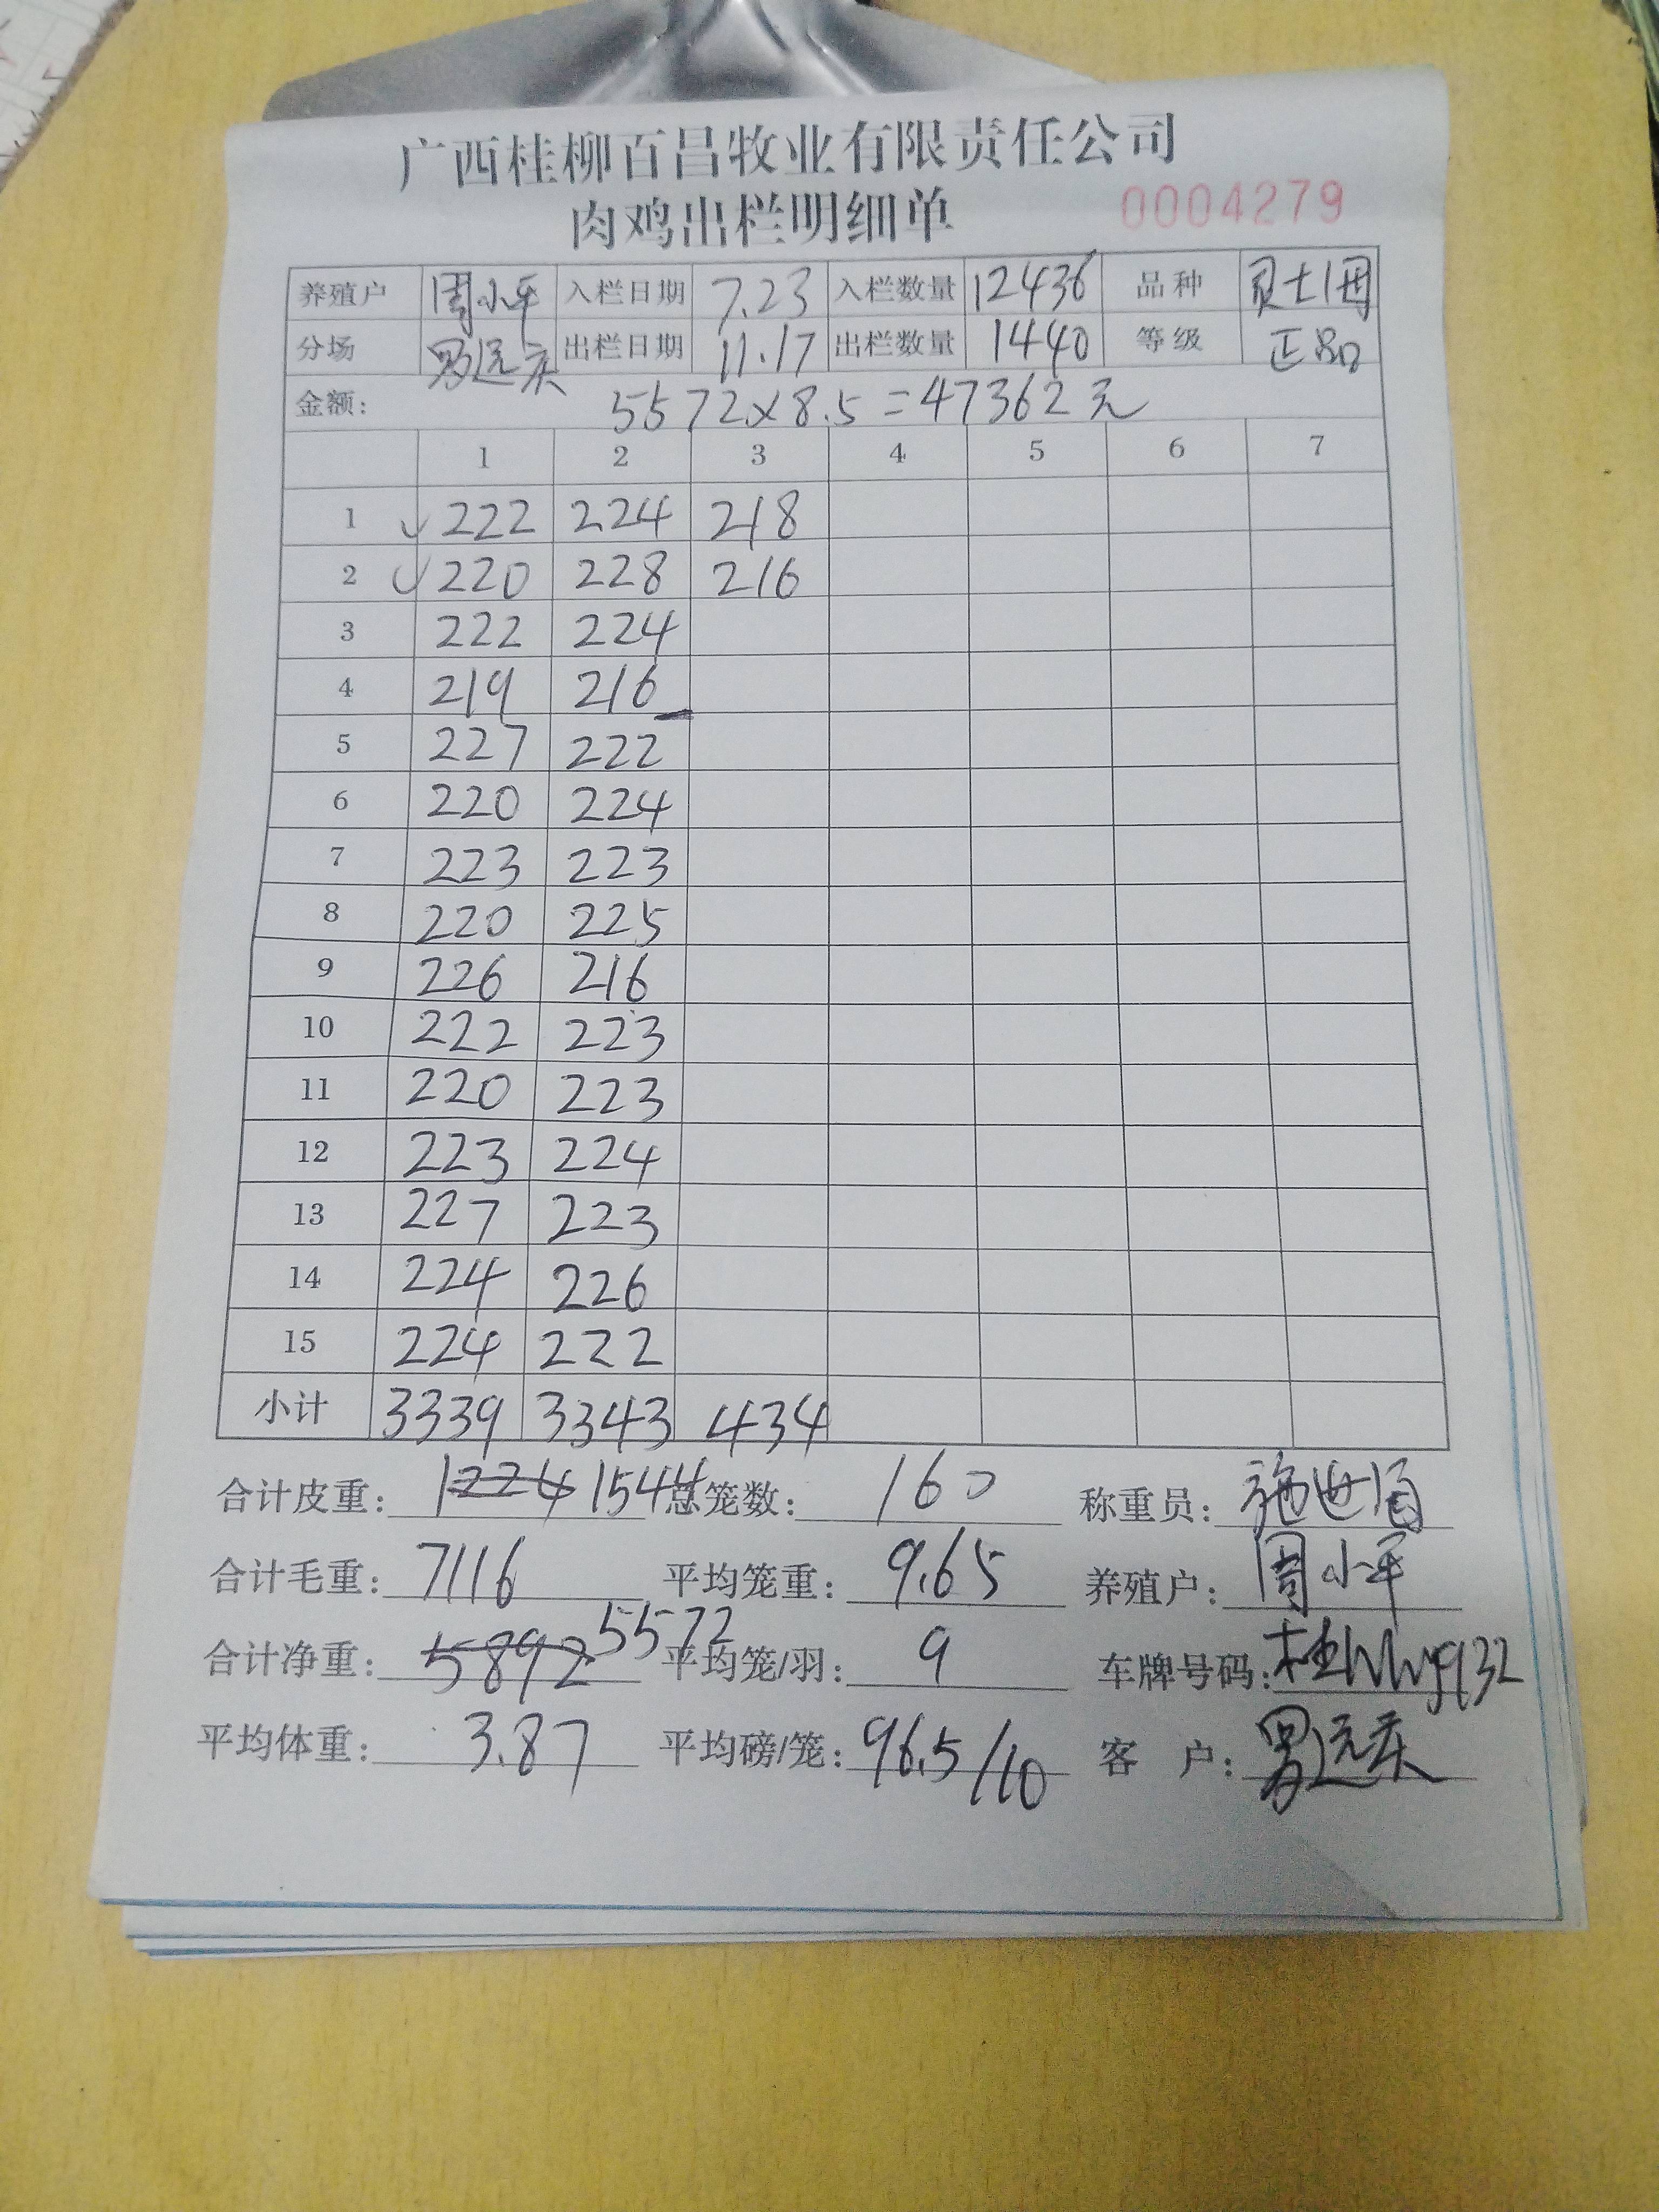 广西桂柳百昌牧业有限责任公司
肉鸡出栏明细单 0004279
养殖户 周小平 入栏日期 7.23 入栏数量 12436 品种
分场 罗远庆 出栏日期 11.17 出栏数量 1440 等级 正品
金额: 5572×8.5=47362元
1 2 3 4 5 6 7
1 222 224 218
2 220 228 216
3 222 224
4 219 216
5 227 222
6 220 224
7 223 223
8 220 225
9 226 216
10 222 223
11 220 223
12 223 224
13 227 223
14 224 226
15 224 222
小计 3339 3343 434
合计皮重: 1224 1544 总笼数: 160 称重员:
合计毛重: 7116 平均笼重: 9.65 养殖户: 周小平
合计净重: 5892 5572 平均笼/羽: 9 车牌号码:
平均体重: 3.87 平均磅/笼: 96.5/10 客 户: 罗远庆